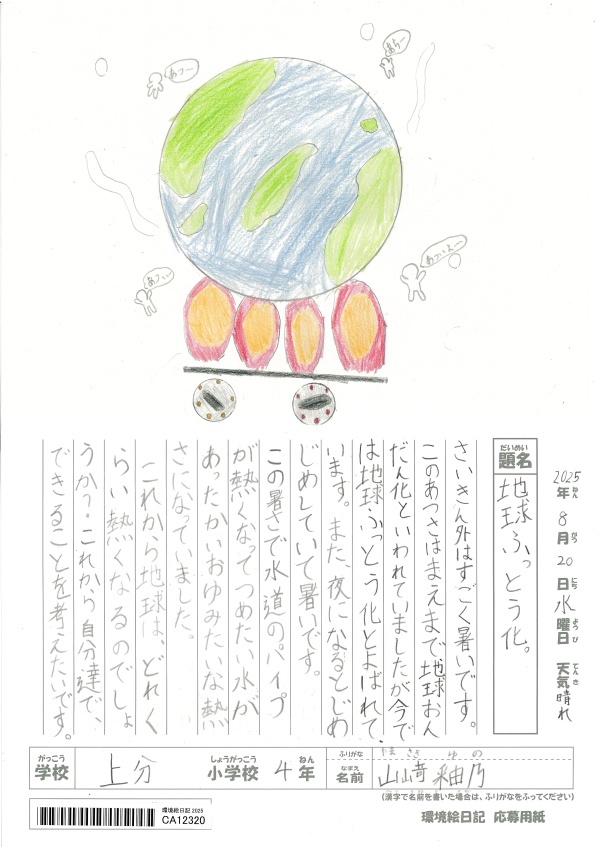 あつー
あちー
あつぃー
あついよー
2025年8月20日水曜日 天気晴れ
ねん
がつ
にち
ようび
てんき
だいめい
題名
地球ふっとう化。
さいきん外はすごく暑いです。
このあつさはまえまで地球おん
だん化といわれていましたが今で
は地球ふっとう化とよばれて
います。また、夜になるとじめ
じめしていて暑いです。
この暑さで水道のパイプ
が熱くなってつめたい水が
あったかいおゆみたいな熱
さになっていました。
これから地球は、どれく
らい熱くなるのでしょ
うか?これから自分達で、
できることを考えたいです。
がっこう
学校
上分
しょうがっこう
小学校
4年
ねん
ふりがな
やまさき ゆの
なまえ
名前
山﨑 釉乃
(漢字で名前を書いた場合は、ふりがなをふってください)
環境絵日記 2025
CA12320
環境絵日記 応募用紙